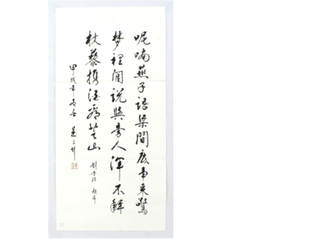 呢喃燕子語梁間底事来驚
梦裡闲説與旁人渾不解
杖藜携酒看芝山 劉季孫 題屏
甲戌